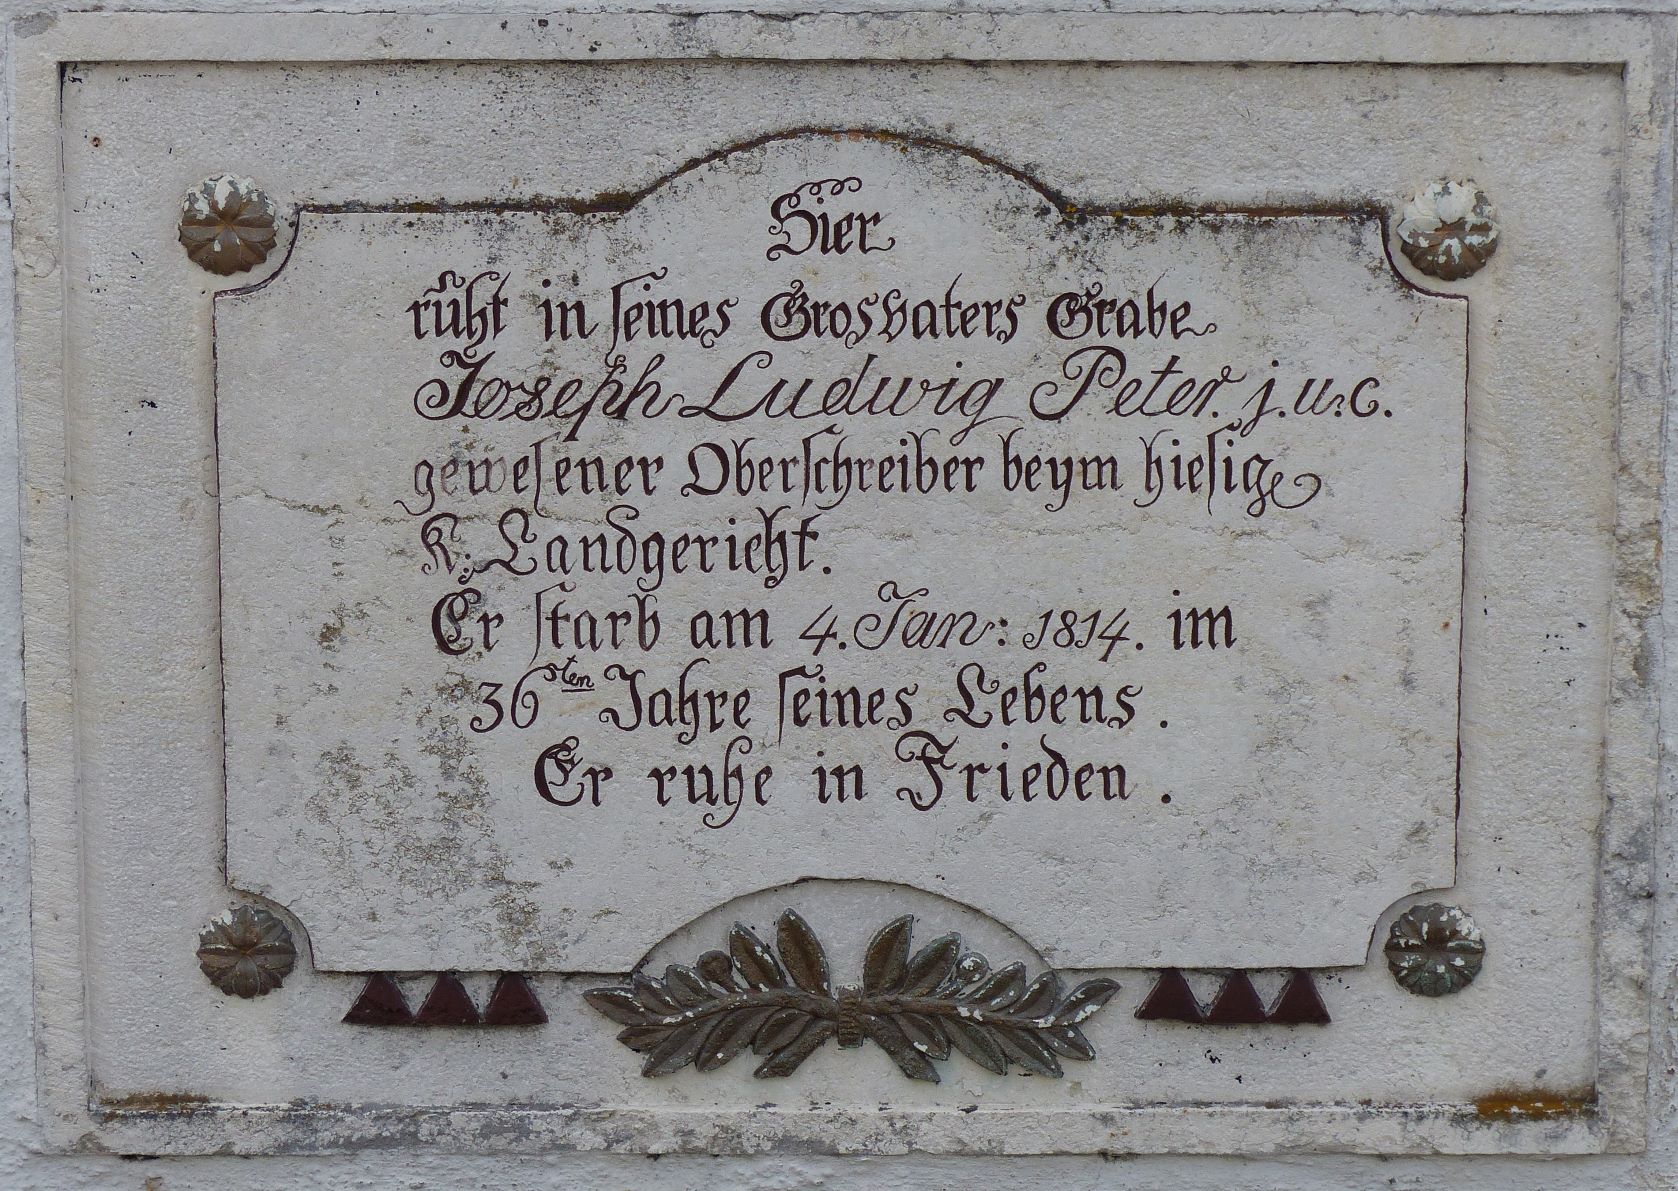 Hier
ruht in seines Grosvaters Grabe
Joseph Ludwig Peter. j. u. c.
gewesener Oberschreiber beym hiesige
K: Landgericht.
Er starb am 4. Jan: 1814. im
36sten Jahre seines Lebens.
Er ruhe in Frieden.